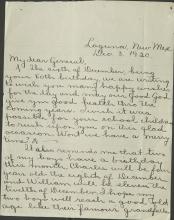 Laguna, New Mex.
Dec. 3, 1920.
My dear General:
The sixth of December, being
your 80th birthday, we are writing
to wish you many happy wishes
for the day and may our good God
give you good health thru the
coming years. I wish it were
possible for your school children
to on this glad
occasion. Wouldn't we have a merry
time?
It also reminds me that two
of my boys have a birthday
this month. Charles will be four
years old the eighth of December
and William will be eleven the
twelfth of December. I hope my
two boys will reach a good old
age like their famous grandfather